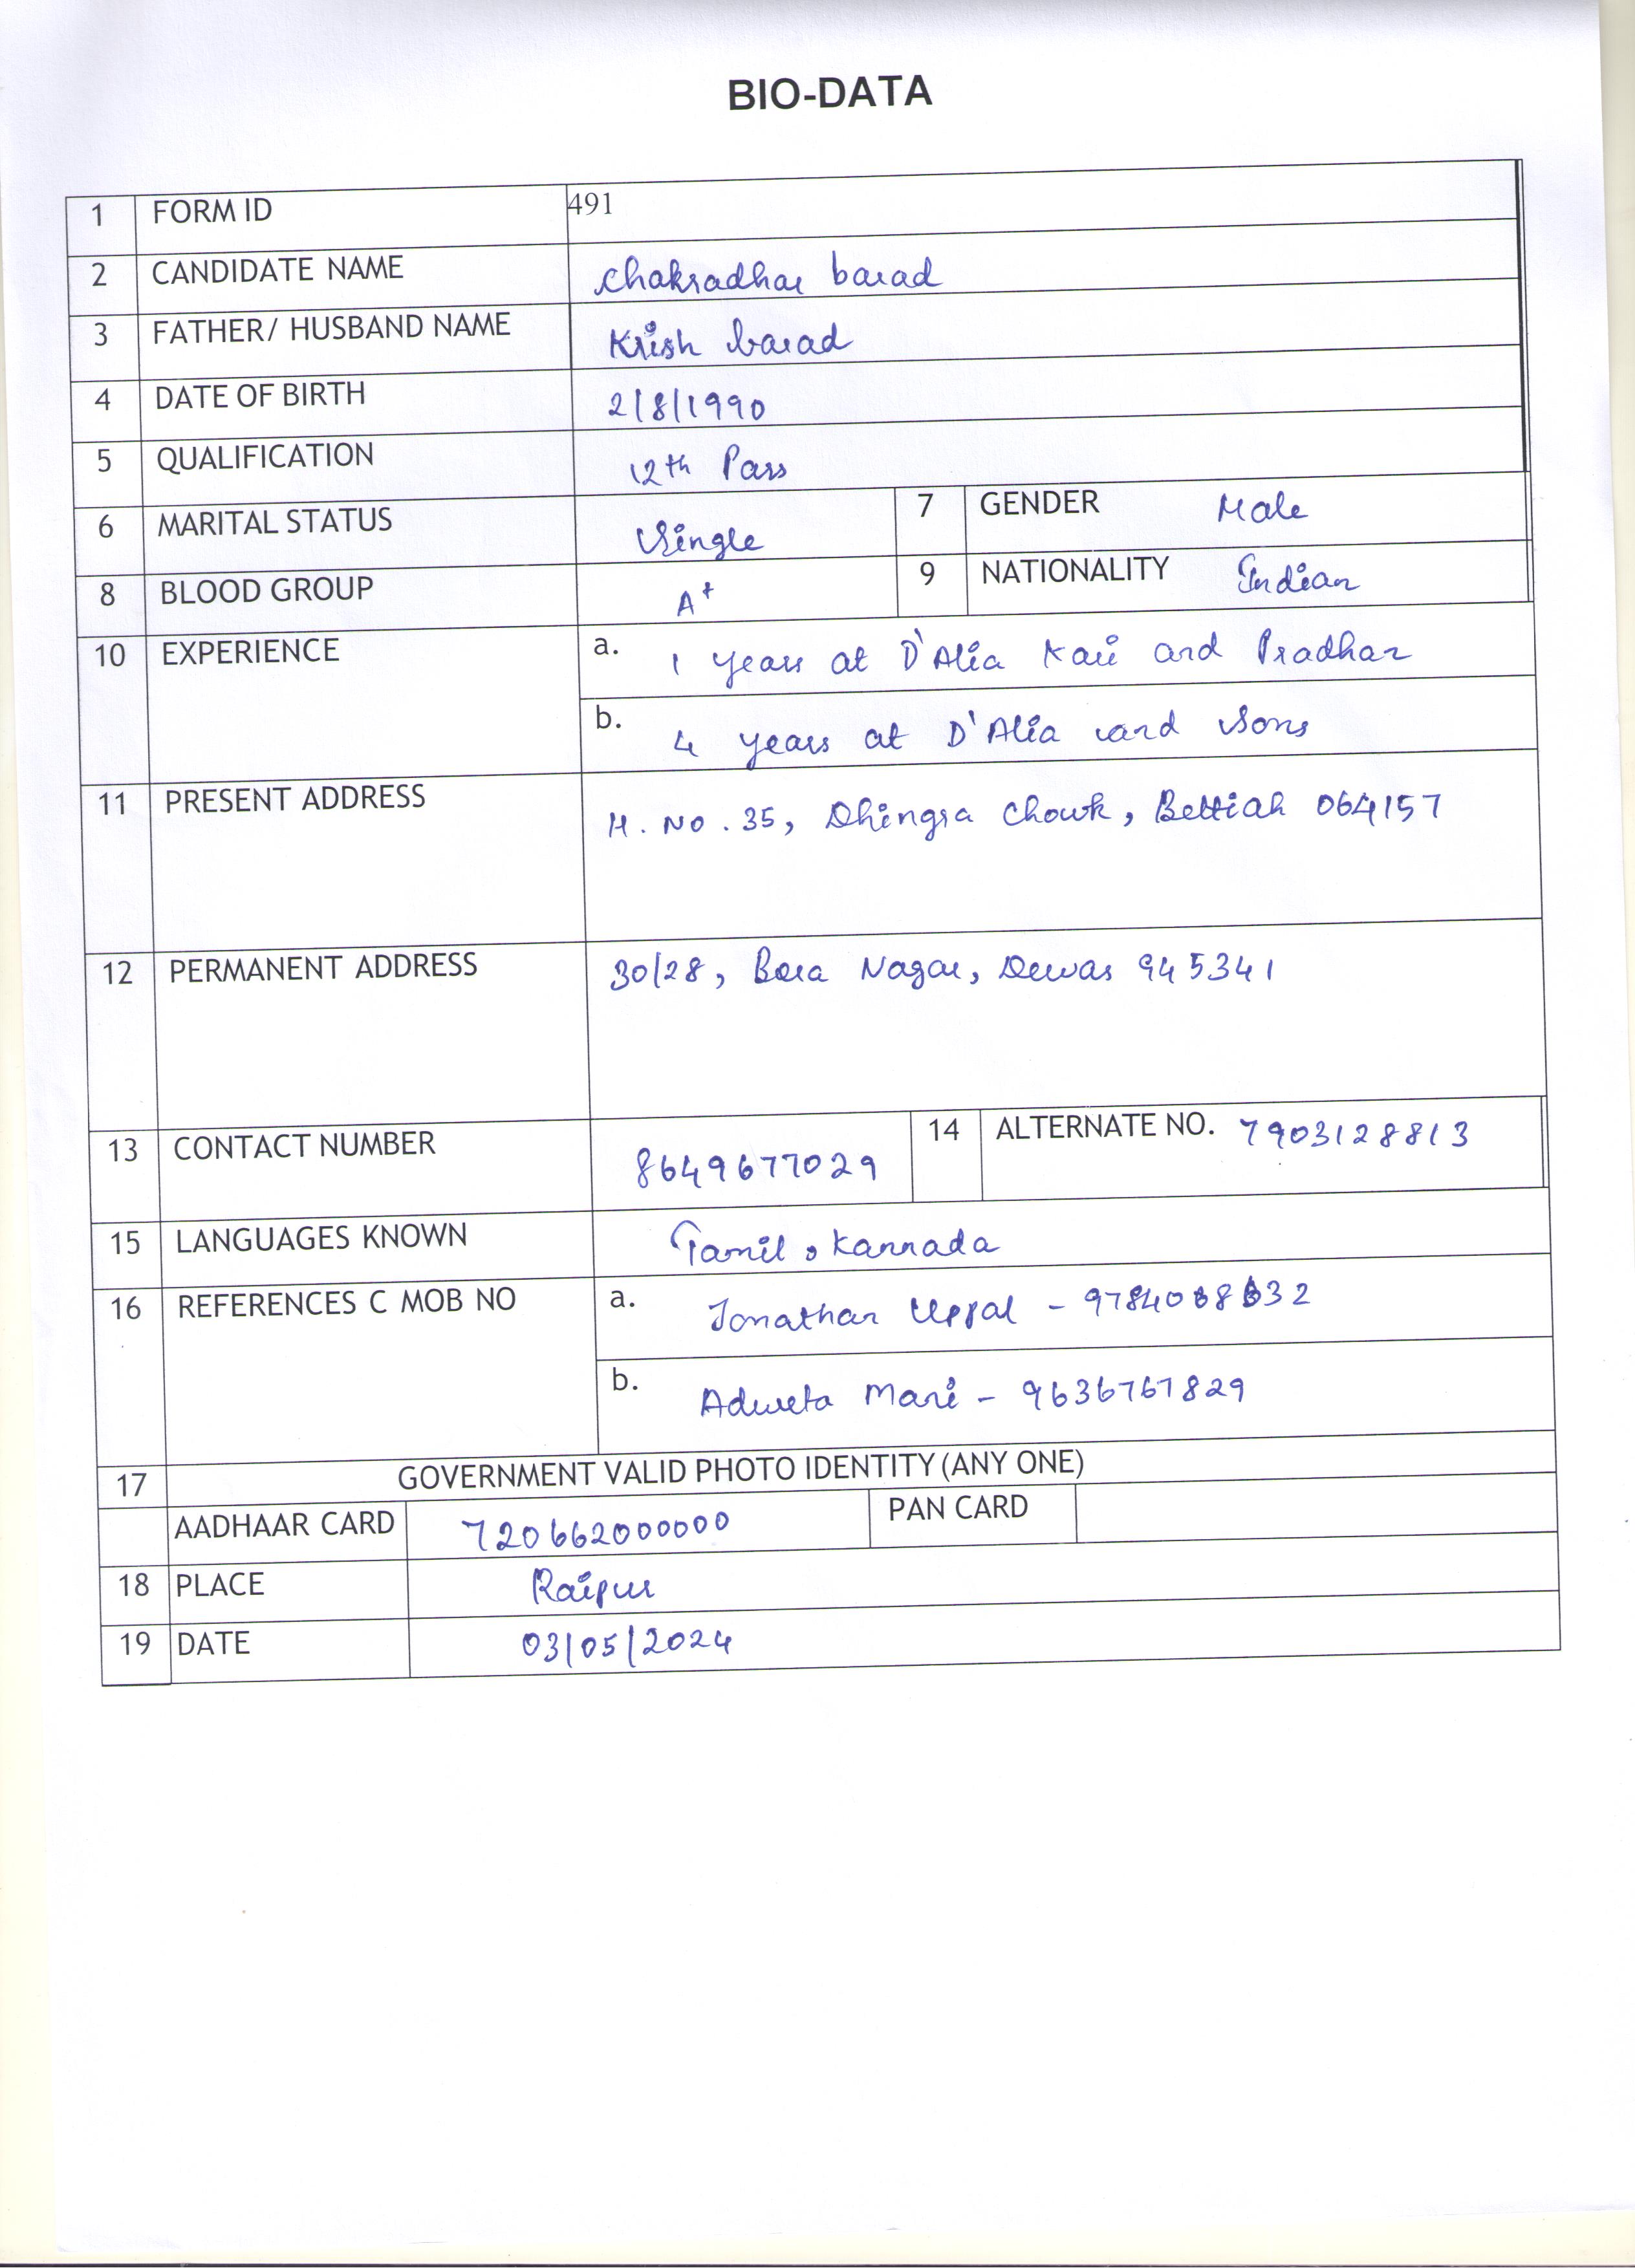 BIO-DATA
1 FORM ID 491
2 CANDIDATE NAME Chakradhar barad
3 FATHER/ HUSBAND NAME Krish barad
4 DATE OF BIRTH 2/8/1990
5 QUALIFICATION 12th Pass
6 MARITAL STATUS Single 7 GENDER Male
8 BLOOD GROUP A+ 9 NATIONALITY Indian
10 EXPERIENCE a. 1 years at D'Alia Kari and Pradhan
b. 4 years at D'Alia and Sons
11 PRESENT ADDRESS H. No. 35, Dhingra Chowk, Bettiah 064157
12 PERMANENT ADDRESS 30/28, Bora Nagar, Dewas 945341
13 CONTACT NUMBER 8649677029 14 ALTERNATE NO. 7903128813
15 LANGUAGES KNOWN Tamil, Kannada
16 REFERENCES C MOB NO a. Jonathan Uppal -
b. Adweta Mani - 9636767829
17 GOVERNMENT VALID PHOTO IDENTITY (ANY ONE)
AADHAAR CARD 720662000000 PAN CARD
18 PLACE Raipur
19 DATE 03/05/2024